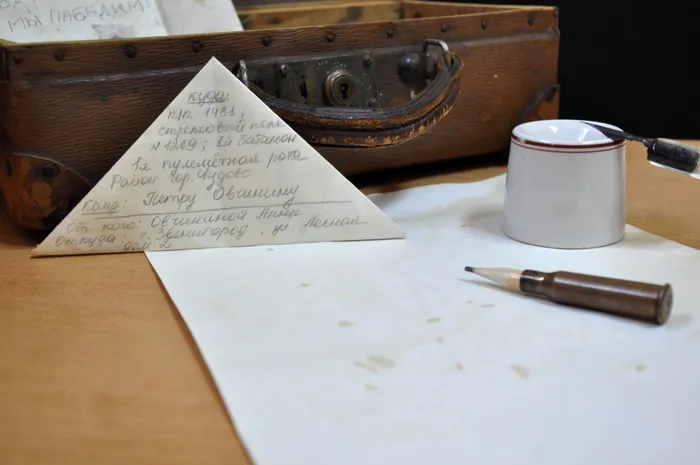 МЫ ПОБЕДИМ!
Куда:
п/п 1431,
стрелковый полк
N 1269; 1й батальон
1я пулемётная рота
Район гор. Чудово
Кому: Петру Овчинину
От кого: Овчининой Анны
Откуда: г. Звенигород, ул. Лесная
дом 2